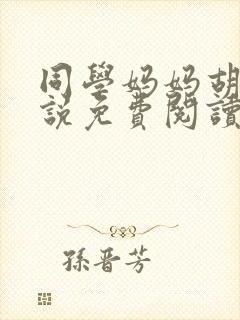 同學妈妈胡
說免費閱讀
孫晋芳